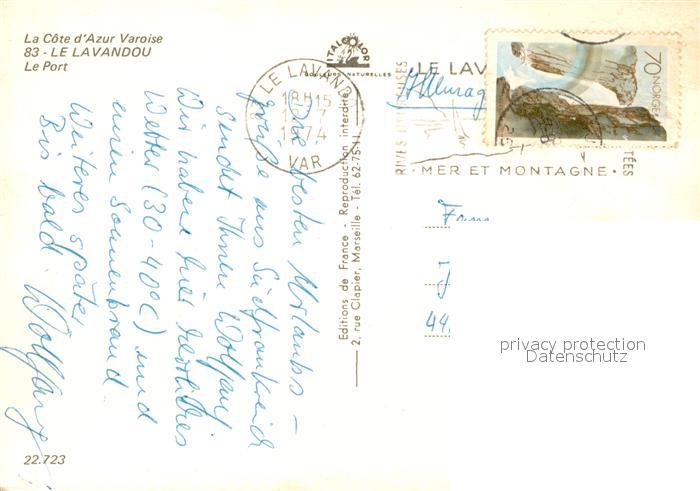 La Côte d'Azur Varoise
83 - LE LAVANDOU
Le Port
ITALCOLOR
COULEURS NATURELLES
LE LAVANDOU
18H15
1974
VAR
RIVES
LE LAV
MER ET MONTAGNE
TÉES
Allemag
70 NORGE
Die besten Urlaubs-
grüße aus Südfrankreich
sendet Ihnen Wolfgang
Wir haben hier herrliches
Wetter (30-40°C) und
einen Sonnenbrand
Weiteres später
Bis bald Wolfgang
Editions de France - Reproduction interdite
2, rue Clapier, Marseille - Tél. 62-75-11
44.
privacy protection
Datenschutz
22.723